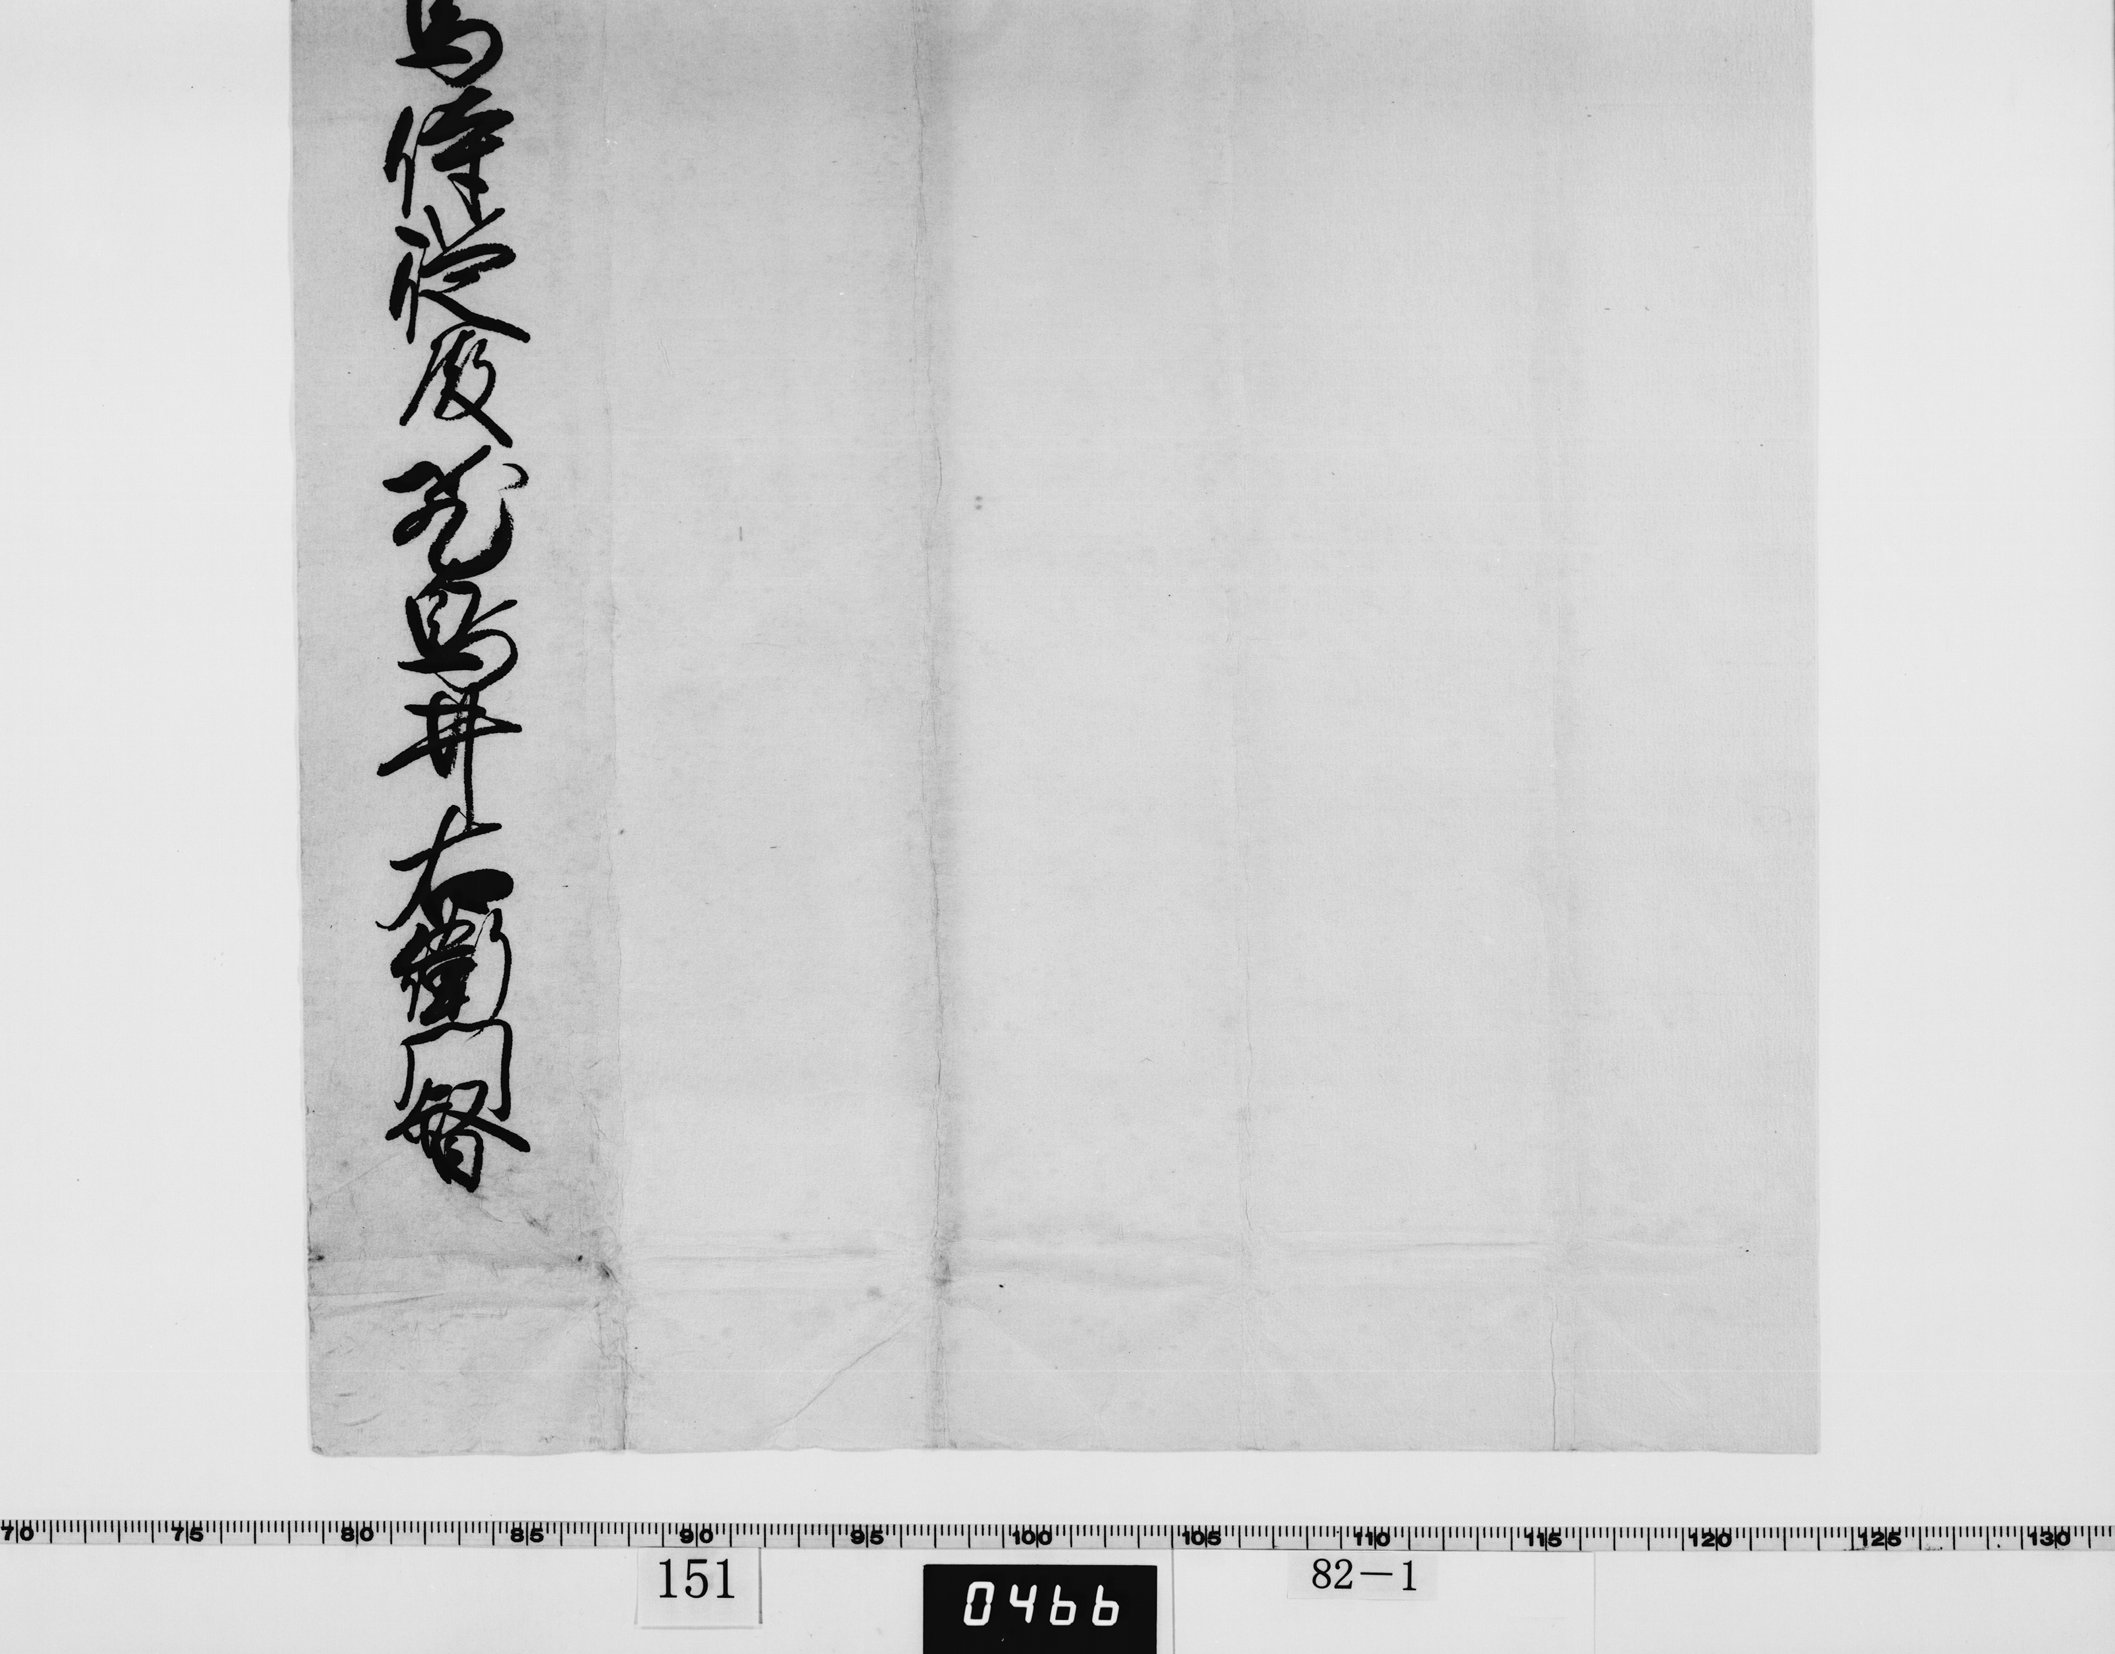 馬侍従殿 飛鳥井右衛門督
70 75 80 85 90 95 100 105 110 115 120 125 130
151
0466
82-1